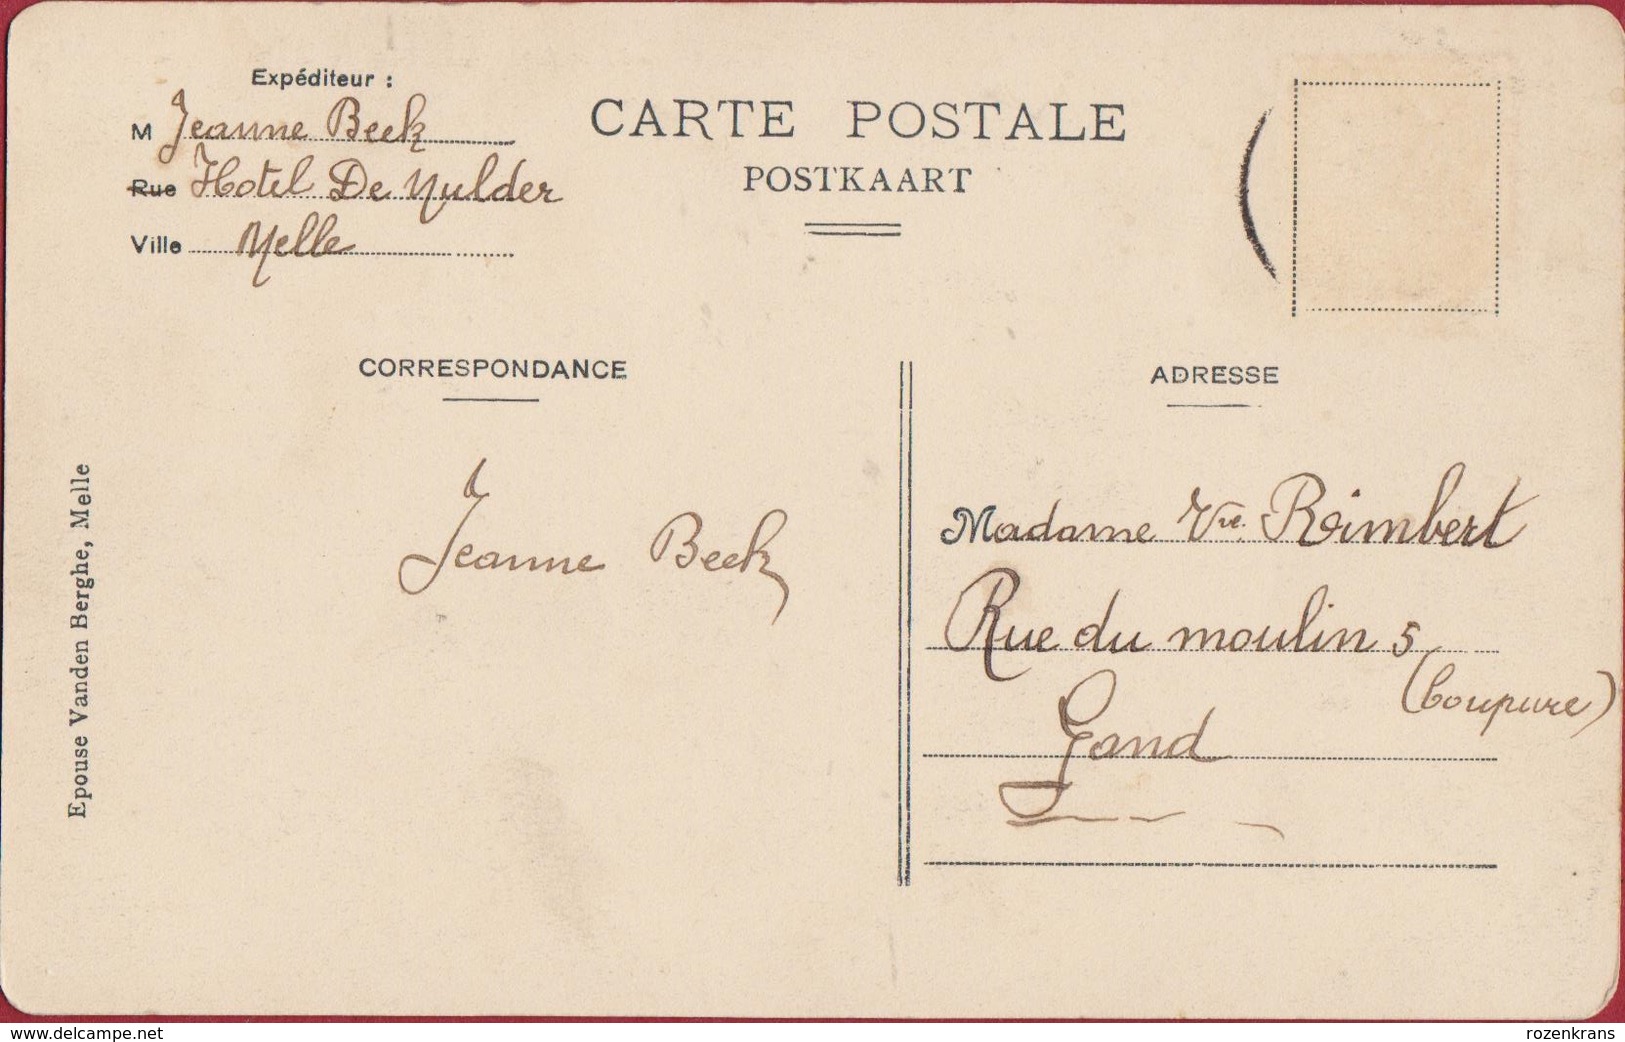 Expéditeur :
M Jeanne Beek
Rue Hotel De Mulder
Ville Melle
CARTE POSTALE
POSTKAART
CORRESPONDANCE
Jeanne Beek
ADRESSE
Madame Vve. Reimbert
Rue du moulin 5
(Coupure)
Gand
Epouse Vanden Berghe, Melle
www.delcampe.net
rozenkrans